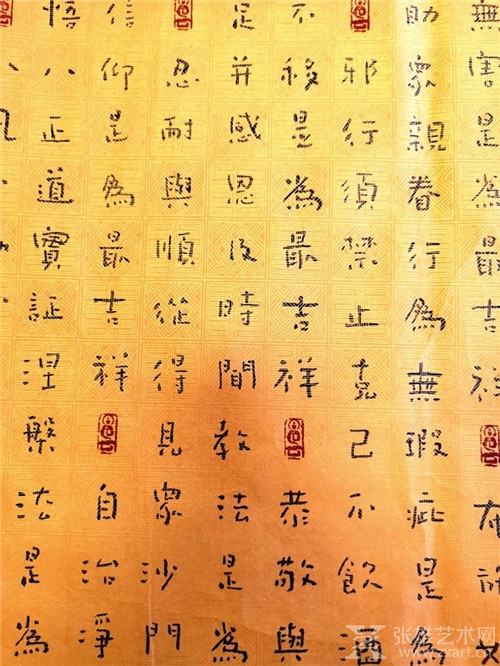 無害是為最吉祥布
助眾親眷行為無瑕疵是為
邪行須禁止克己不飲酒
不移是為最吉祥恭敬與
足并感恩及時聞教法是為
忍耐與順從得見眾沙門
信仰是為最吉祥自治淨
悟八正道實証涅槃法是為
张雄艺术网
www.zxart.cn